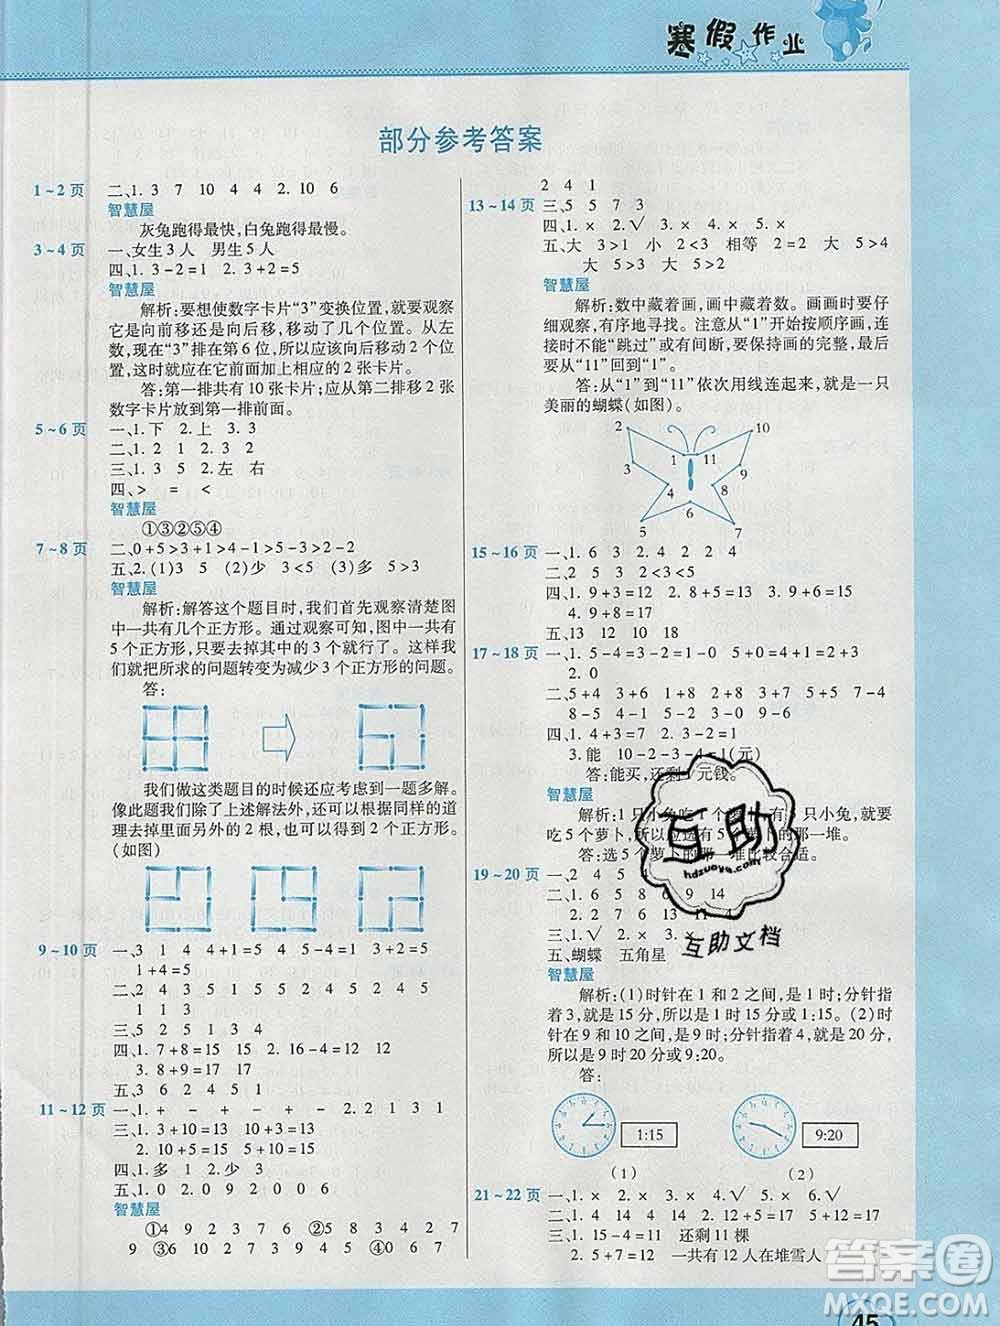 寒假作业
部分参考答案
1~2页 二、1. 3 7 10 4 4 2. 10 6
智慧屋
灰兔跑得最快,白兔跑得最慢。
3~4页 一、女生3人 男生5人
四、1. 3-2=1 2. 3+2=5
智慧屋
解析:要想使数字卡片“3”变换位置,就要观察
它是向前移还是向后移,移动了几个位置。从左
数,现在“3”排在第6位,所以应该向后移动2个位
置,这时就应该在它前面加上相应的2张卡片。
答:第一排共有10张卡片;应从第二排移2张
数字卡片放到第一排前面。
5~6页 一、1. 下 2. 上 3. 3
二、1. 2 1
三、1. 3 5 2. 左 右
四、> = <
智慧屋
①③②⑤④
7~8页 二、0+5>3+1>5-1>5-3>2-2
五、2. (1)3 5 (2)少 (3)多 5>3
智慧屋
解析:解答这个题目时,我们首先观察清楚图
中一共有几个正方形。通过观察可知,图中共有
5个正方形,只要去掉其中的3个就行了。这样我
们就把所求的问题转变为减少3个正方形的问题。
答:
我们做这类题目的时候还应考虑到一题多解。
像此题我们除了上述解法外,还可以根据同样的道
理去掉里面另外的2根,也可以得到2个正方形。
(如图)
9~10页 一、3 1 4 4+1=5 5 4 1+4=5 3 3+2=5
1+4=5
二、2 4 4 5 2 3 5 1 5 5 5 5 5 4 5
1 1 3
三、5 2 5 1 3 4
四、1. 7+8=15 15 2. 16-4=12 12
3. 8+9=17 17
五、3 6 2 4 5 1
11~12页 一、1. + - + - + - 2. 2 1 3 1
三、1. 3+10=13 10+3=13
2. 10+5=15 5+10=15
四、1. 多 1 2. 少 3
五、1. 6 0 2. 9 0 2 0 0 6
智慧屋
①4 9 2 7 2 6 ②5 8 3 4 2 7
9 ③6 3 2 5 2 1 ④0 7 7 8 1
2 4 1
13~14页 三、5 5 7 3
四、1. × 2. √ 3. × 4. × 5. ×
五、大 3>1 小 2<3 相等 2=2 大 5>4
大 5>3 大 5>3
智慧屋
解析:数中藏着画,画中藏着数。画画时要仔
细观察,有序地寻找。注意从“1”开始按顺序画,
连接时不能“跳过”或有间断,要保持画的完整,最
后要从“11”回到“1”。
答:从“1”到“11”依次用线连起来,就是一只
美丽的蝴蝶(如图)。
2 10
1 11
3 9
4 8
6
5 7
15~16页 一、1. 6 3 2. 4 2 2 4
2<4 4>2 2<3 3>2
四、1. 9+3=12 2. 8+3=11 3. 8+7=15
4. 9+8=17
五、13 12 10 18
17~18页 一、1. 5-4=3-2 5+0=4+1=2+3
2. 0
二、5+4 9-3 7-2 4+3 7+5 7-4
8-5 4-2 9-5 3-0 9-6
四、1. 4+3=7 2. 3-2=1
3. 能 10-2-3-4=1(元)
答:能买,还剩 元钱。
智慧屋
解析:1只小兔吃1个萝卜,有 只小兔,就要
吃5个萝卜,所以应选有5个萝卜的那一堆。
答:选5个萝卜的那 堆比较合适。
19~20页 一、2 4 5 4
二、1. 5 8 6 9 14
2. 2 7 13 6 14
三、1. √ 2. × 3. × 4. √
五、蝴蝶 五角星
智慧屋
解析:(1)时针在1和2之间,是1时;分针指
着3,就是15分,所以是1时15分或1:15。(2)时
针在9和10之间,是9时;分针指着4,就是20分,
所以是9时20分或9:20。
答:
1:15 9:20
(1) (2)
21~22页 一、1. × 2. × 3. × 4. √ 5. √
二、1. 14 4 14 14 2. 2 2 2 2
三、1. 15-4=11 还剩11棵
2. 5+7=12 一共有12人在堆雪人
45
互助
hdzuoye.com
互助文档
答案圈
MXQE.COM